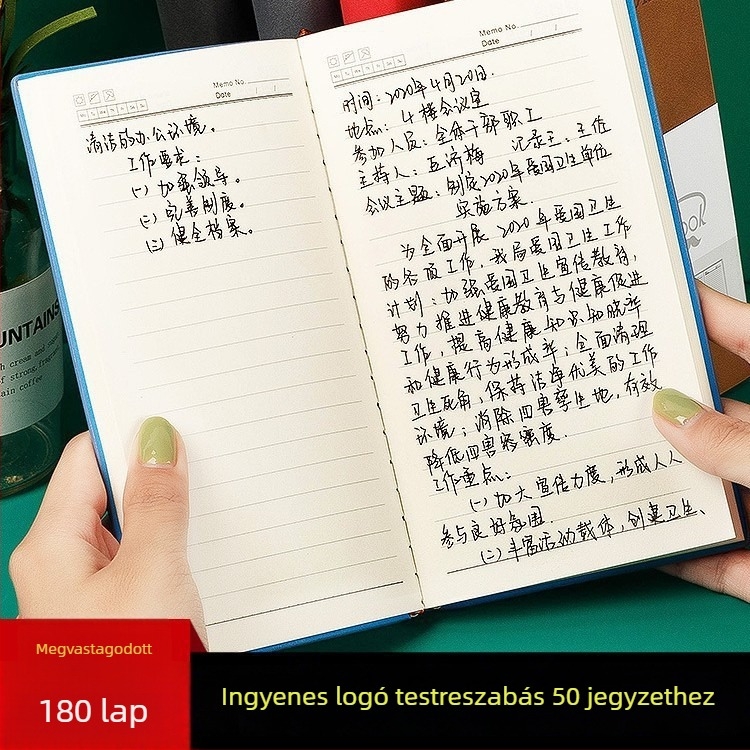 Memo No.
Date / /
Mo Tu We Th Fr Sa Su
清洁的办公环境。
工作要求:
(一) 加强领导。
(二) 完善制度。
(三) 健全档案。
Memo No.
Date / /
Mo Tu We Th Fr Sa Su
时间:2020年4月20日.
地点: 4楼会议室
参加人员:全体干部职工
主持人:
会议主题:制定2020年爱国卫生单位
实施方案.
为全面开展2020年爱国卫生
的各项工作,我局爱国卫生工作
计划:加强爱国卫生宣传教育,
努力推进健康教育与健康促进
工作,提高健康知识知晓率
和健康行为形成率;全面清理
卫生死角,保持洁净优美的工作
环境;消除四害孳生地,有效
降低四害密度.
工作重点:
(一) 加大宣传力度,形成人人
参与良好氛围.
(二) 丰富活动载体,创建卫生、
UNTAINS
h cream and
of strong, fragrant
ain coffee
ook
Megvastagodott
180 lap
Ingyenes logó testreszabás 50 jegyzethez